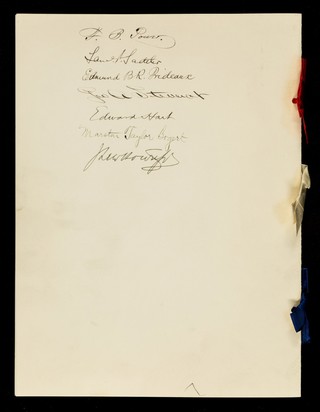 F. B. Power.
Saml P. Sadtler
Edmund B. R. Prideaux
Edward Hart
Marston Taylor Bogert